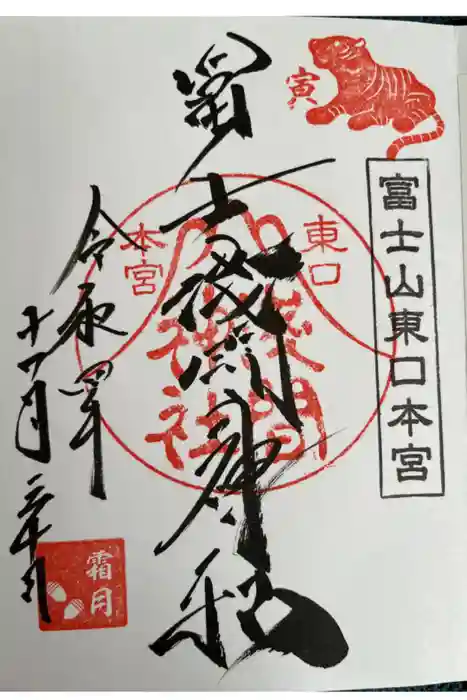 寅
富士山東口本宮
東口
本宮
淺間
神社
冨士浅間神社
令和四年
十一月
霜月